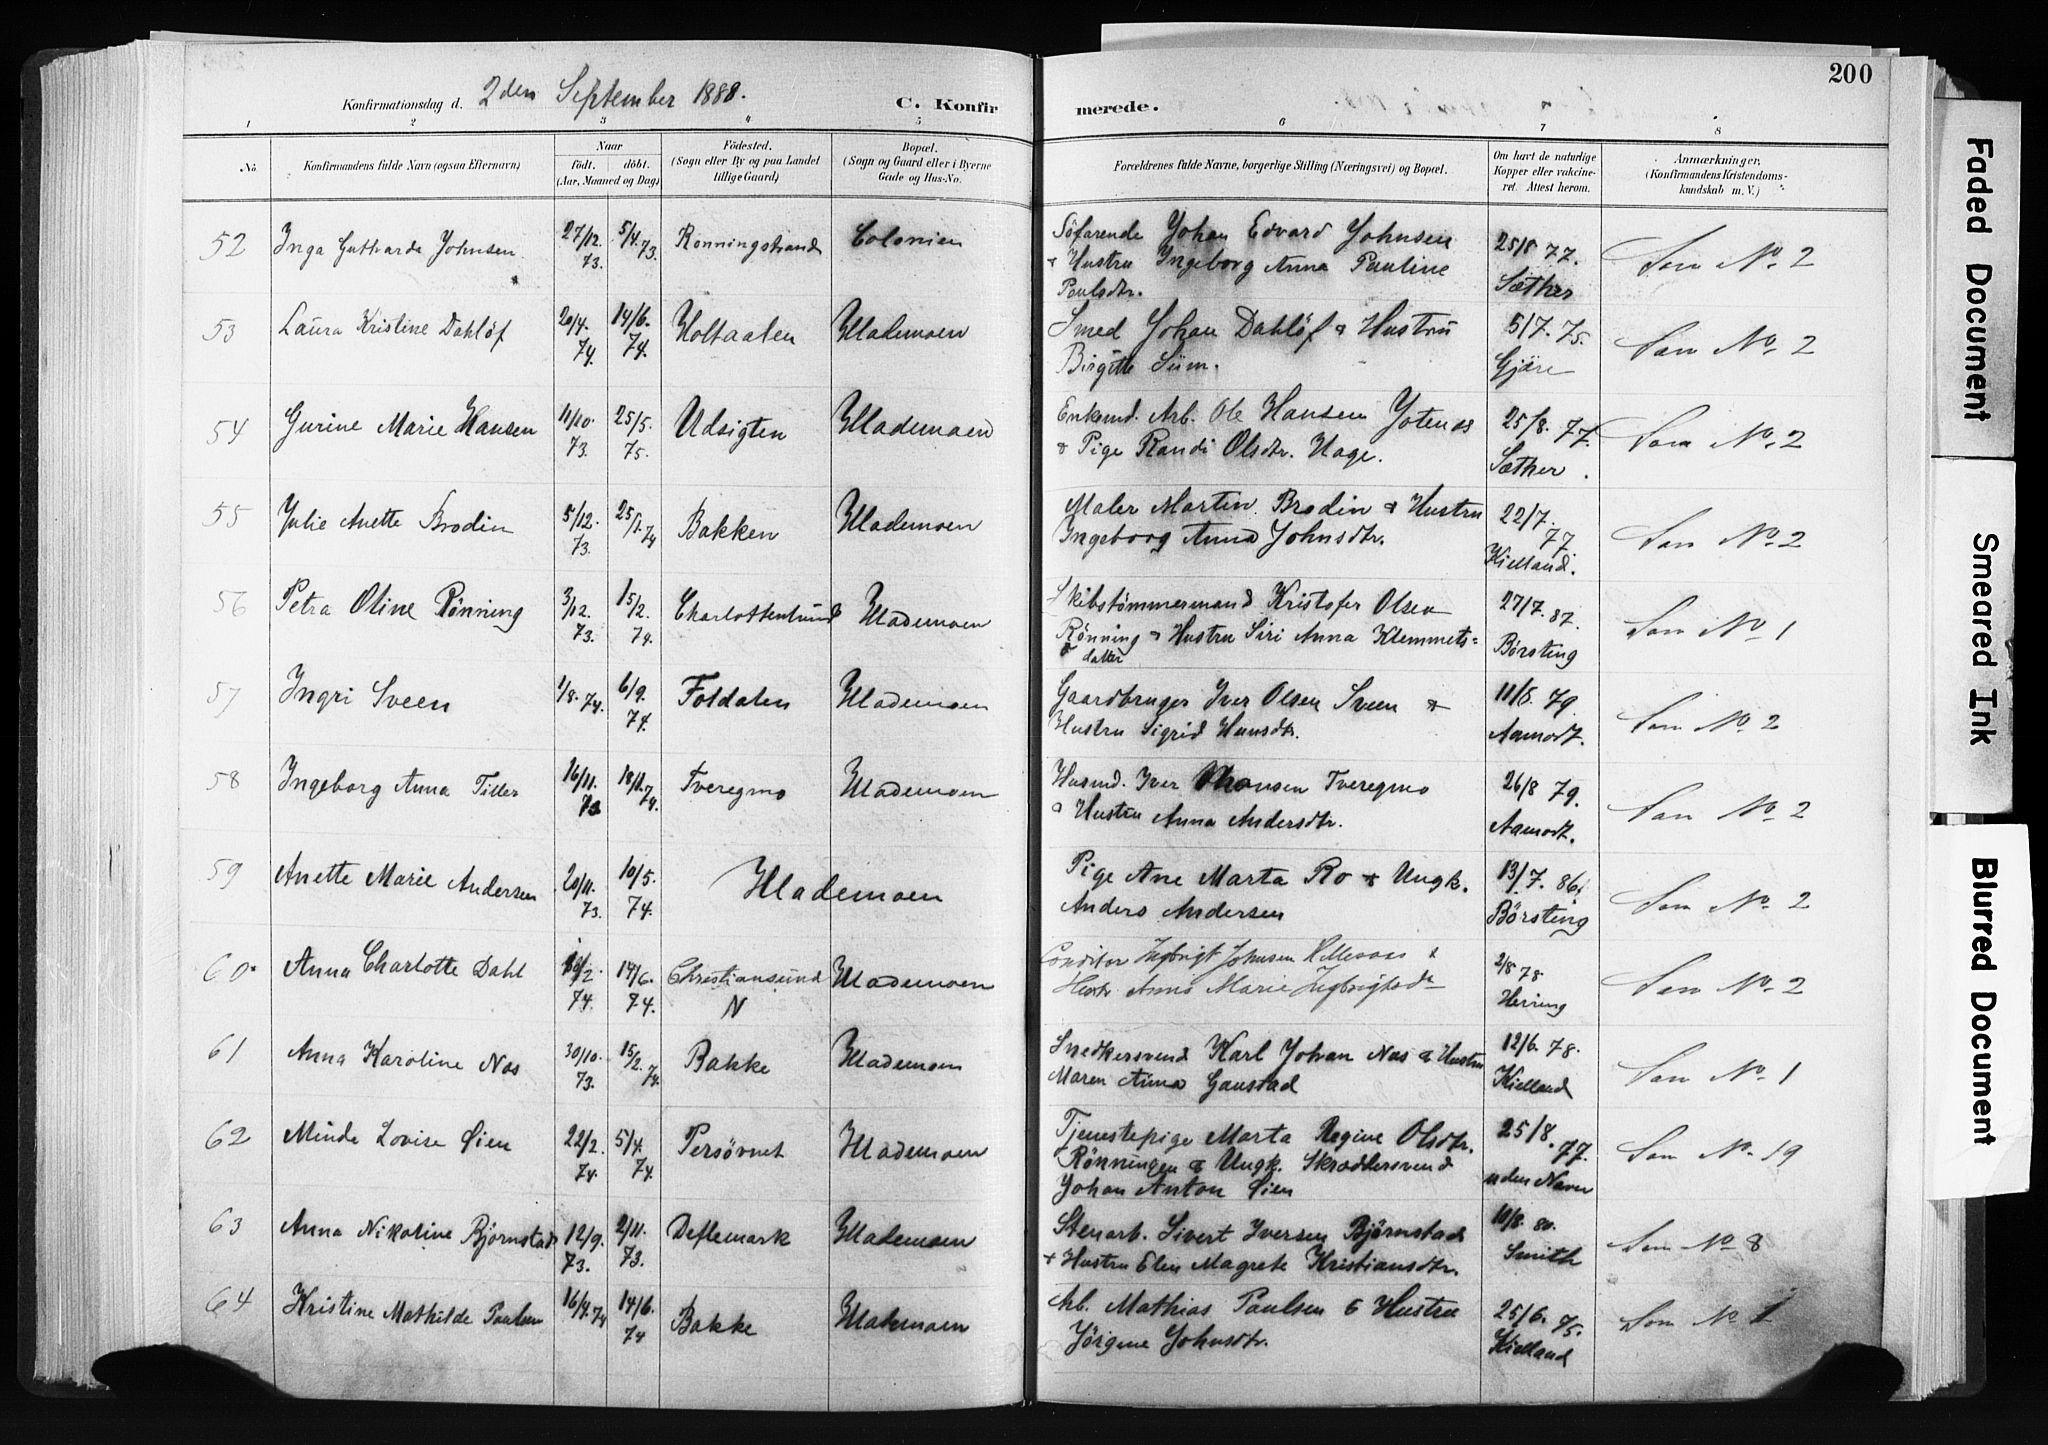 200
Konfirmationsdag d. 2den September 1888.
C. Konfirmerede.
1 2 3 4 5 6 7 8
No
Konfirmandens fulde Navn (ogsaa Efternavn)
Naar
født. døbt.
(Aar, Maaned og Dag)
Fødested.
(Sogn eller By og paa Landet
tillige Gaard)
Bopæl.
(Sogn og Gaard eller i Byerne
Gade og Hus-No.
Forældrenes fulde Navne, borgerlige Stilling (Næringsvei) og Bopæl.
Om havt de naturlige
Kopper eller vakcine-
ret. Attest herom.
Anmærkninger.
(Konfirmandens Kristendoms-
kundskab m. V.)
52 Inga Gutharda Johnsen 27/12. 73. 5/4. 73. Rønningstrand Colonien
Söfarende Johan Edvard Johnsen
& Hustru Ingeborg Anna Pauline
Paulsdtr.
25/8 77.
Sæther
Som No. 2
53 Laura Kristine Dahlöf 20/4. 74. 14/6. 74. Holtaalen Hlademoen
Smed Johan Dahlöf & Hustru
Birgitte Siim.
5/7. 75.
Gjöre
Som No. 2
54 Gurine Marie Hansen 11/10. 73. 25/5. 75. Udsigten Hlademoen
Enkemd. Arb. Ole Hansen Jotenes
& Pige Randi Olsdtr. Hage.
25/8. 77.
Sæther.
Som No. 2
55 Julie Anette Brodin 5/12. 73. 25/1. 74 Bakken Hlademoen
Maler Martin Brodin & Hustru
Ingeborg Anna Johnsdtr.
22/7. 77.
Kielland.
Som No. 2
56 Petra Oline Rönning 3/12. 73. 15/2. 74. Charlottenlund Hlademoen
Skibstömmermand Kristofer Olsen
Rönning & Hustru Siri Anna Klemmets=
datter
27/7. 87.
Börsting
Som No. 1
57 Ingri Sveen 1/8. 74. 6/9. 74. Foldalen Hlademoen
Gaardbruger Iver Olsen Sveen &
Hustru Sigrid Hansdtr.
11/8. 79.
Aamodt.
Som No. 2
58 Ingeborg Anna Tiller 16/11. 73 18/1. 74. Tveregmo Hlademoen
Husmd. Iver Tveregmo
& Hustru Anna Andersdtr.
26/8 79.
Aamodt.
Som No. 2
59 Anette Marie Andersen 20/11. 73. 10/5. 74. Hlademoen
Pige Ane Marta Ro & Ungk.
Anders Andersen
13/7. 86.
Börsting
Som No. 2
60. Anna Charlotte Dahl 2. 74. 14/6. 74. Christiansund
N Hlademoen
Conditor Ingbrigt Johnsen &
Hustr. Anne Marie Ingbrigtsdr
2/8 78
Herring
Som No. 2
61 Anna Karoline Nos 30/10. 73. 15/2. 74. Bakke Hlademoen
Snedkersvend Karl Johan Nos & Hustru
Maren Anna Gaustad
12/6. 78.
Kielland
Som No. 1
62 Minda Lovise Øien 22/2. 74. 5/4. 74. Persövnet Hlademoen
Tjenestepige Marta Regine Olsdtr.
Rönningen & Ungk. Skrædersvend
Johan Anton Øien
25/8. 77.
uden Navn
Som No. 19
63 Anna Nikoline Bjørnstad 12/9. 73. 2/11. 73. Deflemark Hlademoen
Stenarb. Sivert Iversen Bjørnstad
& Hustru Elen Magrete Kristiansdtr.
10/8. 80.
Smith
Som No 8
64 Kristine Mathilde Paulsen 16/4. 74 14/6. 74 Bakke Hlademoen
Arb. Mathias Paulsen & Hustru
Jörgine Johnsdtr.
25/6. 75.
Kielland
Som No 1
Faded Document
Smeared Ink
Blurred Document